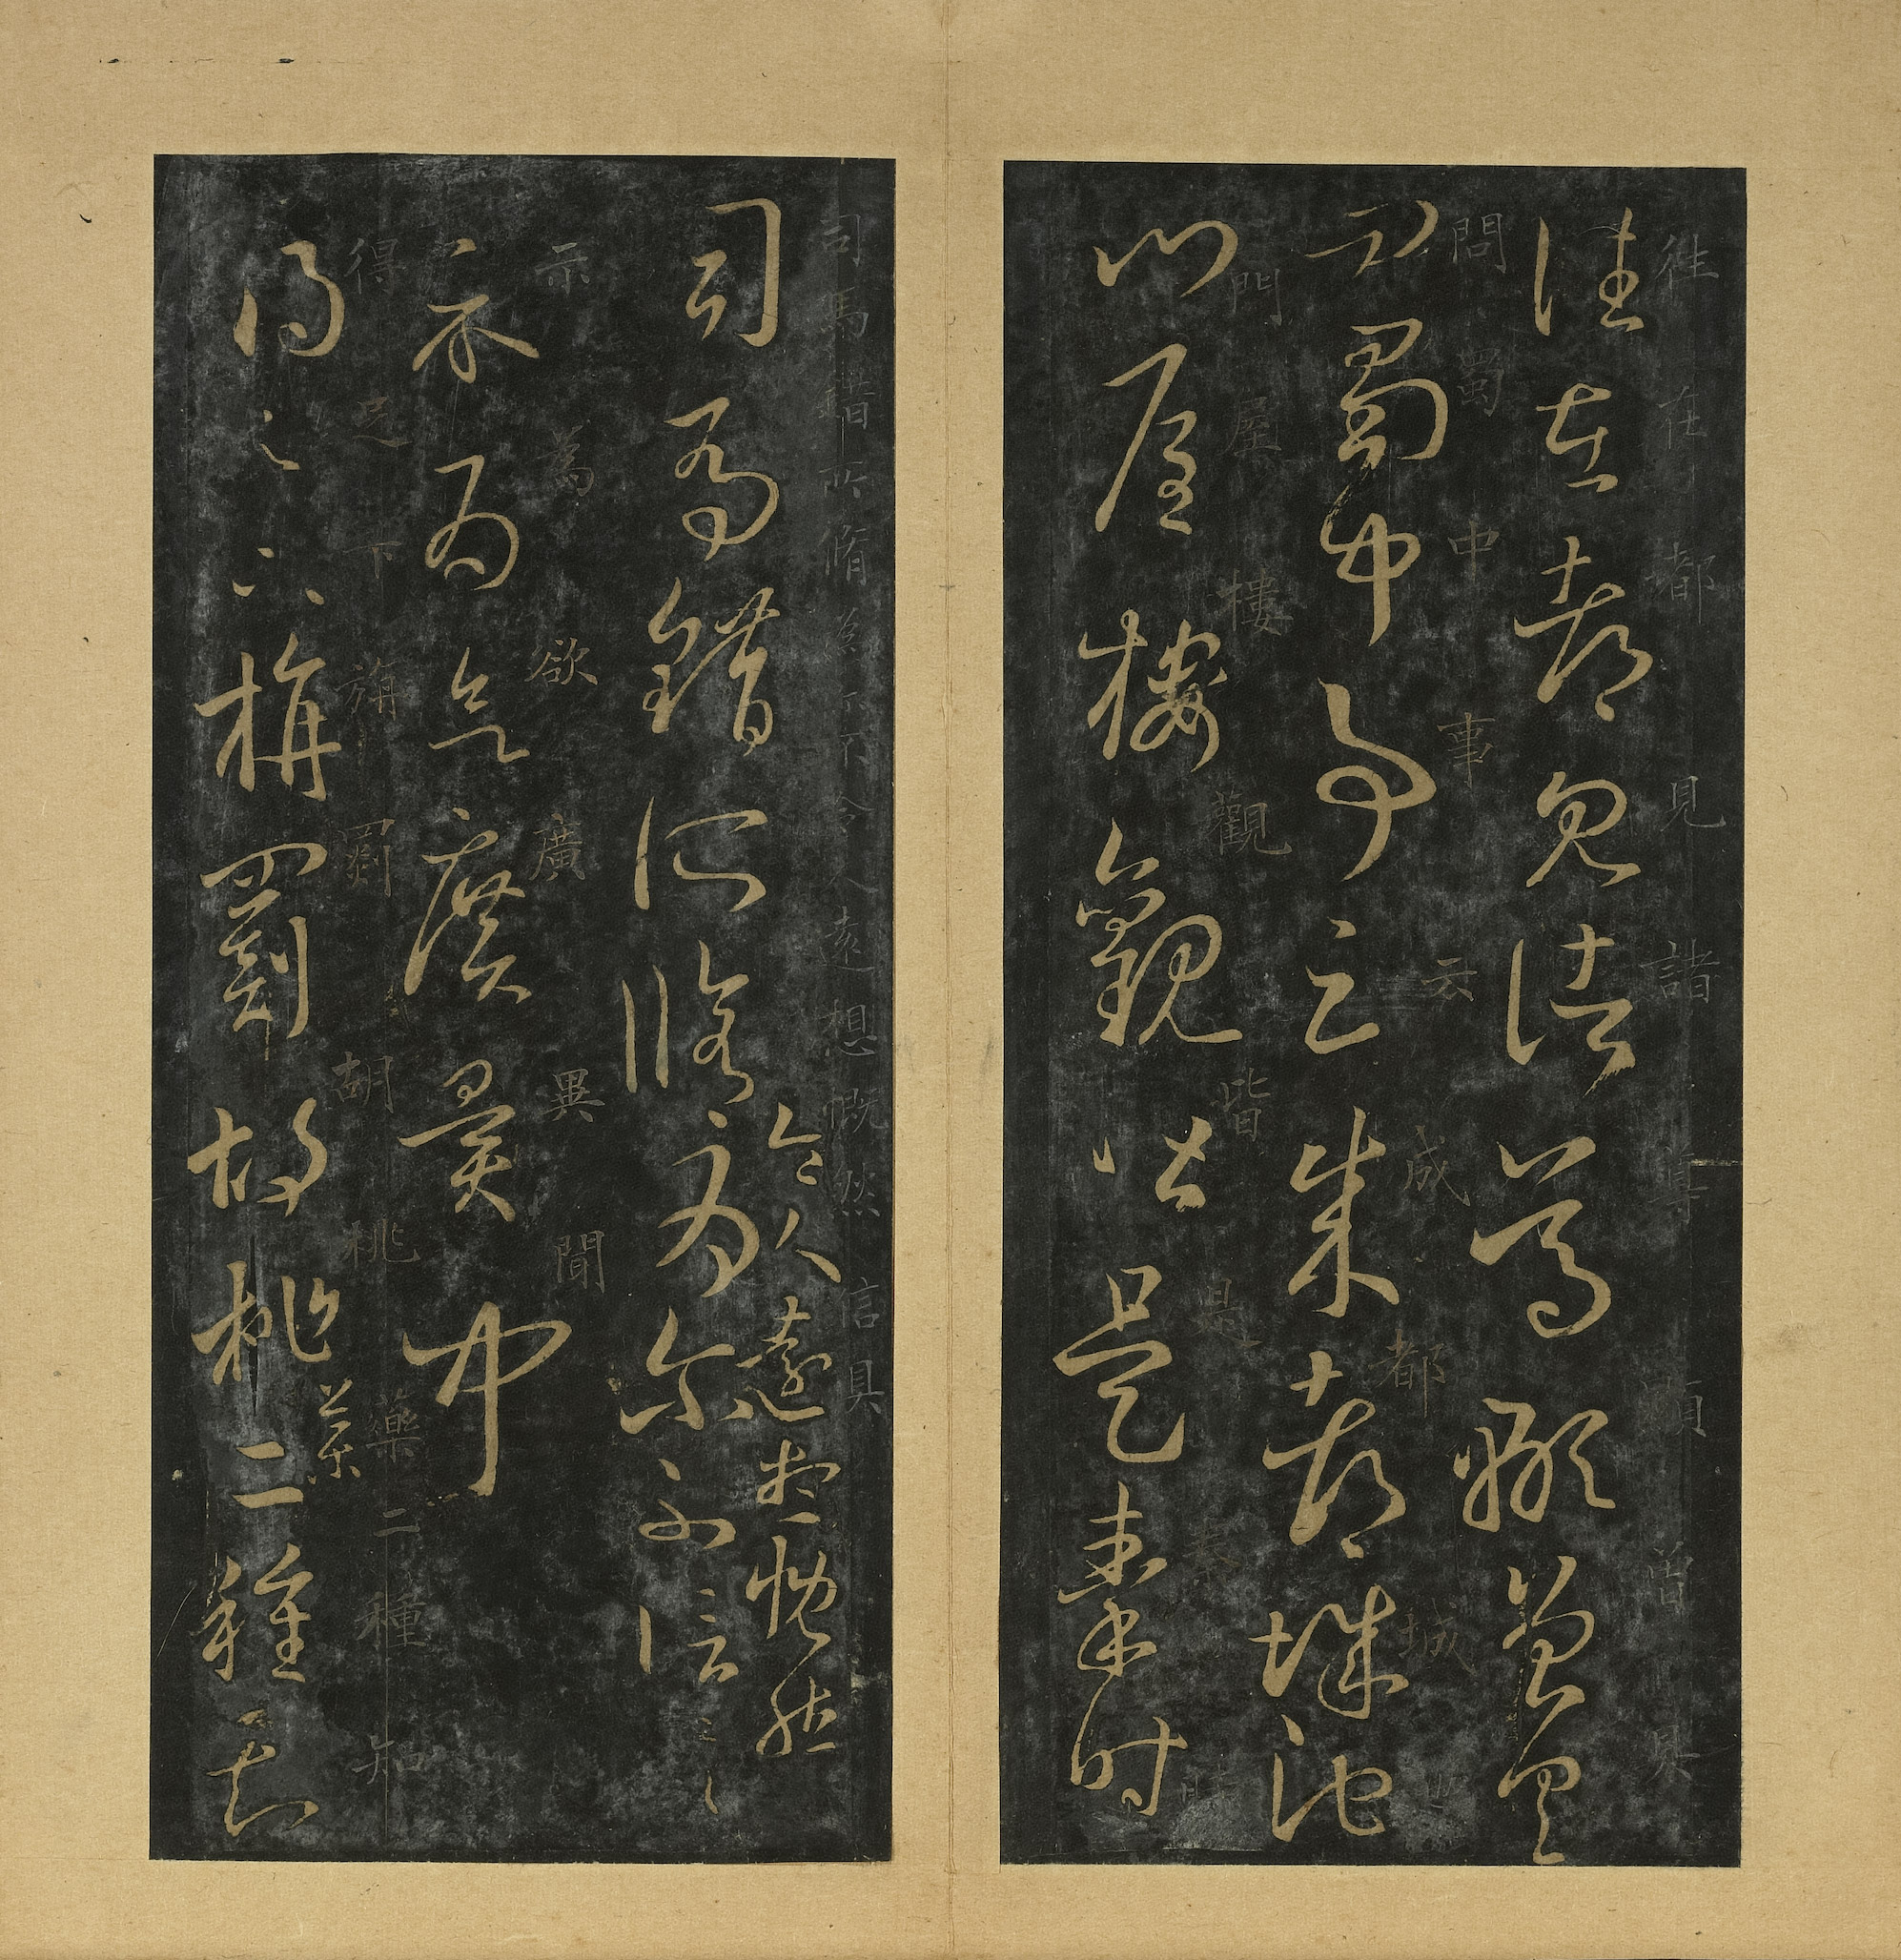 往在都見諸顒曾具
往在都見諸葛顒曾具
問蜀中事云成都城池
問蜀中事云成都城池
門屋樓觀皆是秦時
門屋樓觀皆是秦時
司馬錯所脩為尔不令人遠想慨然信具
令人遠想慨然
司馬錯所脩為尔不信具
示為欲廣異聞
示為欲廣異聞
得足下旃罽胡桃藥二種知
得足下旃罽胡桃藥二種知